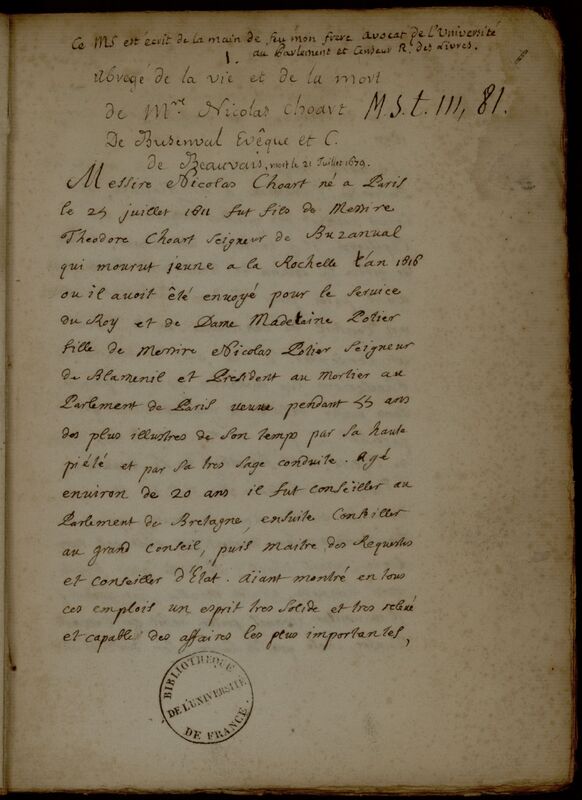 Ce MS est écrit de la main de feu mon frere avocat de l'Université
au Parlement et Censeur R. des Livres.
1.
Abregé de la vie et de la mort
de Mre Nicolas Choart M.S.t. III, 81.
De Busenval Evêque et C.
de Beauvais, mort le 21 Juillet 1679.
Messire Nicolas Choart né a Paris
le 25 juillet 1611 fut fils de Messire
Theodore Choart Seigneur de Buzanual
qui mourut jeune a la Rochelle l'an 1616
ou il avoit êté envoyé pour le service
du Roy et de Dame Madelaine Potier
fille de Messire Nicolas Potier Seigneur
de Blamenil et President au Mortier au
Parlement de Paris veuve pendant 55 ans
des plus illustres de son temps par sa haute
piété et par sa tres sage conduite. Agé
environ de 20 ans il fut Conseiller au
Parlement de Bretagne, ensuite Conseiller
au grand Conseil, puis maitre des Requestes
et Conseiller d'Etat. Aiant montré en tous
ces emplois un esprit tres solide et tres relevé
et capable des affaires les plus importantes,
BIBLIOTHEQUE
DE L'UNIVERSITÉ
DE FRANCE.